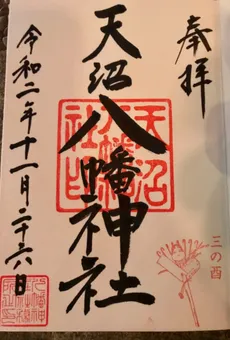 奉拝
天沼八幡神社
天沼八幡社印
三の酉
令和二年十一月二十六日